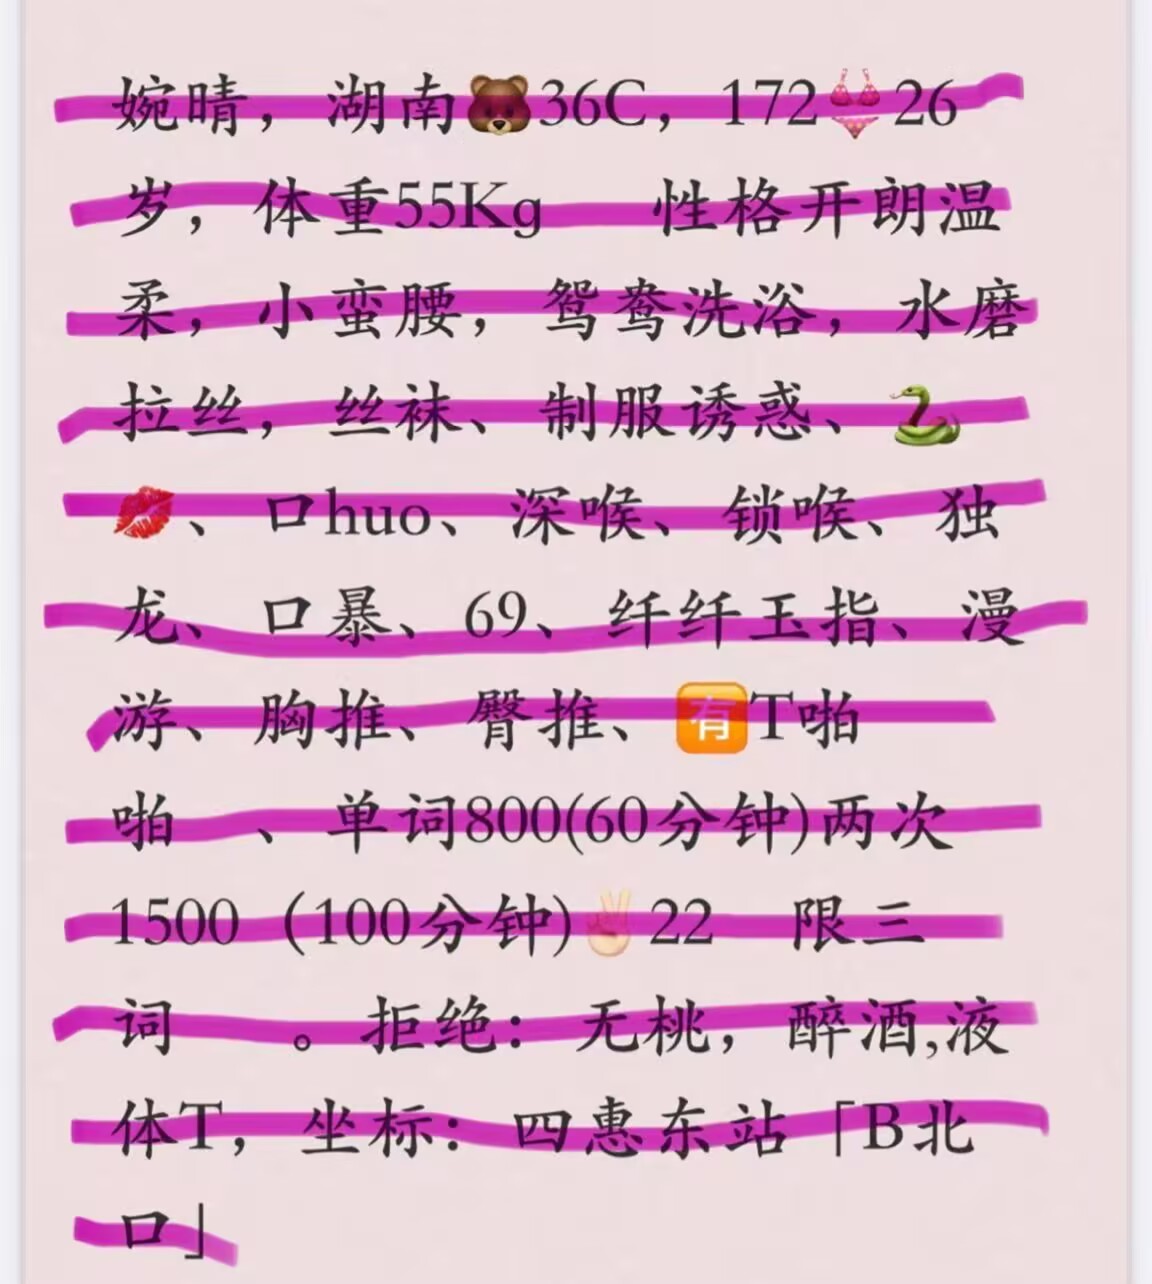 婉晴，湖南🐻36C，172👙26
岁，体重55Kg　性格开朗温
柔，小蛮腰，鸳鸯洗浴，水磨
拉丝，丝袜、制服诱惑、🐍
💋、口huo、深喉、锁喉、独
龙、口暴、69、纤纤玉指、漫
游、胸推、臀推、🈶T啪
啪　、单词800(60分钟)两次
1500（100分钟)✌🏻22　限三
词　　。拒绝：无桃，醉酒,液
体T，坐标：四惠东站「B北
口」